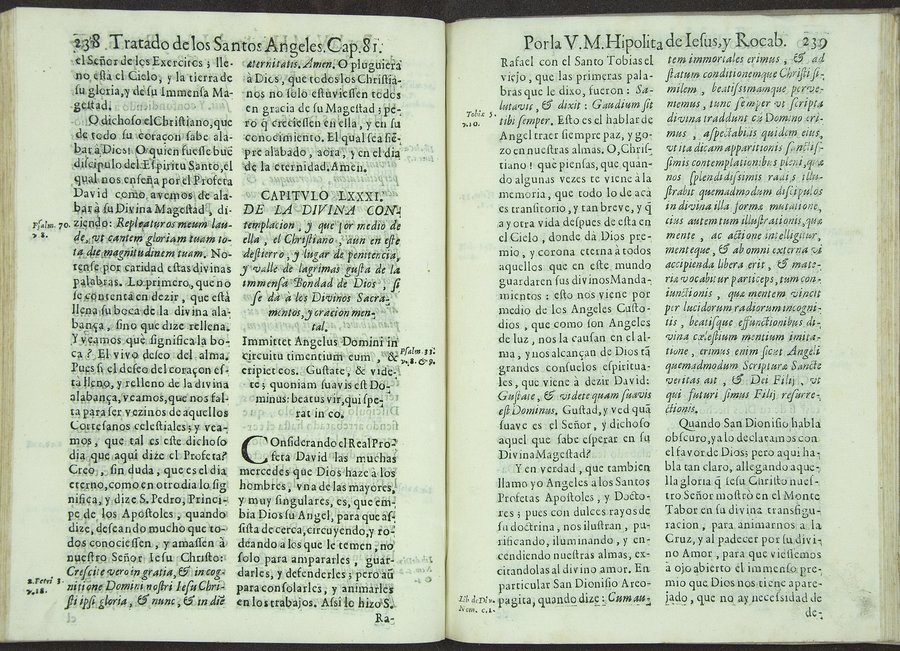 238 Tratado de los Santos Angeles. Cap. 81.
el Señor de los Exercitos; lle-
no està el Cielo, y la tierra de
su gloria, y de su Immensa Ma-
gestad.
O dichoso el Christiano, que
de todo su coraçon sabe ala-
bar à Dios! O quien fuesse buẽ
discipulo del Espiritu Santo, el
qual nos enseña por el Profeta
David como avemos de ala-
bar à su Divina Magestad, di-
ziendo: Repleatur os meum lau-
de, vt cantem gloriam tuam to-
ta die magnitudinem tuam. No-
tense por caridad estas divinas
palabras. Lo primero, que no
se contenta en dezir, que està
llena su boca de la divina ala-
bança, sino que dize rellena.
Y veamos que significa la bo-
ca? El vivo deseo del alma.
Pues si el deseo del coraçon es-
ta lleno, y relleno de la divina
alabança, veamos, que nos fal-
ta para ser vezinos de aquellos
Cortesanos celestiales; y vea-
mos, que tal es este dichoso
dia que aqui dize el Profeta?
Creo, sin duda, que es el dia
eterno, como en otro dia lo sig
nifica, y dize S. Pedro, Princi-
pe de los Apostoles, quando
dize, deseando mucho que to-
dos conociessen, y amassen à
nuestro Señor Iesu Christo:
Crescite vero in gratia, & in cog-
nitione Domini nostri Iesu Chri-
sti ipsi gloria, & nunc, & in diẽ
Psalm. 70.
v. 8.
2. Petri 3.
v. 18.
æternitatis. Amen. O pluguiera
à Dios, que todos los Christia-
nos no solo estuviessen todos
en gracia de su Magestad; pe-
ro q̃ creciessen en ella, y en su
conocimiento. El qual sea siẽ-
pre alabado, aora, y en el dia
de la eternidad. Amèn.
CAPITVLO LXXXI.
DE LA DIVINA CON-
templacion, y que por medio de
ella, el Christiano, aun en este
destierro, y lugar de penitencia,
y valle de lagrimas gusta de la
immensa Bondad de Dios, si
se dà à los Divinos Sacra-
mentos, y oracion men-
tal.
Immittet Angelus Domini in
circuitu timentium eum, &
eripiet eos. Gustate, & vide-
te; quoniam suavis est Do-
minus: beatus vir, qui spe-
rat in eo.
Psalm. 33.
v. 8. & 9.
COnsiderando el Real Pro-
feta David las muchas
mercedes que Dios haze à los
hombres, vna de las mayores,
y muy singulares, es, que em-
bia Dios su Angel, para que as-
sista de cerca, circuyendo, y ro-
deando a los que le temen, no
solo para ampararles, guar-
darles, y defenderles; pero aũ
para consolarles, y animarles
en los trabajos. Assi lo hizo S.
Ra-
Por la V. M. Hipolita de Iesus, y Rocab. 239
Rafael con el Santo Tobias el
viejo, que las primeras pala-
bras que le dixo, fueron: Sa-
lutavit, & dixit: Gaudium sit
tibi semper. Esto es el hablar de
Angel traer siempre paz, y go-
zo en nuestras almas. O, Chris-
tiano! que piensas, que quan-
do algunas vezes te viene à la
memoria, que todo lo de acà
es transitorio, y tan breve, y q̃
à y otra vida despues de esta en
el Cielo, donde dà Dios pre-
mio, y corona eterna à todos
aquellos que en este mundo
guardaren sus divinos Manda-
mientos: esto nos viene por
medio de los Angeles Custo-
dios, que como son Angeles
de luz, nos la causan en el al-
ma, y nos alcançan de Dios tã
grandes consuelos espiritua-
les, que viene à dezir David:
Gustate, & videte quam suavis
est Dominus. Gustad, y ved quã
suave es el Señor, y dichoso
aquel que sabe esperar en su
Divina Magestad?
Y en verdad, que tambien
llamo yo Angeles à los Santos
Profetas Apostoles, y Docto-
res; pues con dulces rayos de
su doctrina, nos ilustran, pu-
rificando, iluminando, y en-
cendiendo nuestras almas, ex-
citandolas al divino amor. En
particular San Dionisio Areo-
pagita, quando dize: Cum au-
Tobiæ 5.
v. 10.
Lib. de Div.
Nom. c. 1.
tem immortales erimus, & ad
statum conditionemque Christi si-
milem, beatissimamque perve-
nemus, tunc semper vt scripta
divina traddunt cũ Domino eri-
mus, aspectabilis quidem eius,
vt ita dicam apparitionis sanctis-
simis contemplationibus pleni, quæ
nos splendidissimis radijs illu-
strabit quemadmodum discipulos
in divina illa formæ mutatione,
eius autem tum illustrationis, quæ
mente, ac actione intelligitur,
menteque, & ab omni externa vi
accipienda libera erit, & mate-
ria vocabitur participes, tum con-
iunctionis, quæ mentem vincit
per lucidorum radiorum incogni-
tis, beatisque effunctionibus di-
vina cœlestium mentium imita-
tione, erimus enim sicut Angeli
quemadmodum Scripturæ Sanctæ
veritas ait, & Dei Filij, vt
qui futuri simus Filij resurre-
ctionis.
Quando San Dionisio habla
obscuro, ya lo declaramos con
el favor de Dios; pero aqui ha-
bla tan claro, allegando aque-
lla gloria q̃ Iesu Christo nues-
tro Señor mostrò en el Monte
Tabor en su divina transfigu-
racion, para animarnos a la
Cruz, y al padecer por su divi-
no Amor, para que viessemos
à ojo abierto el immenso pre-
mio que Dios nos tiene apare-
jado, que no ay necessidad de
de-